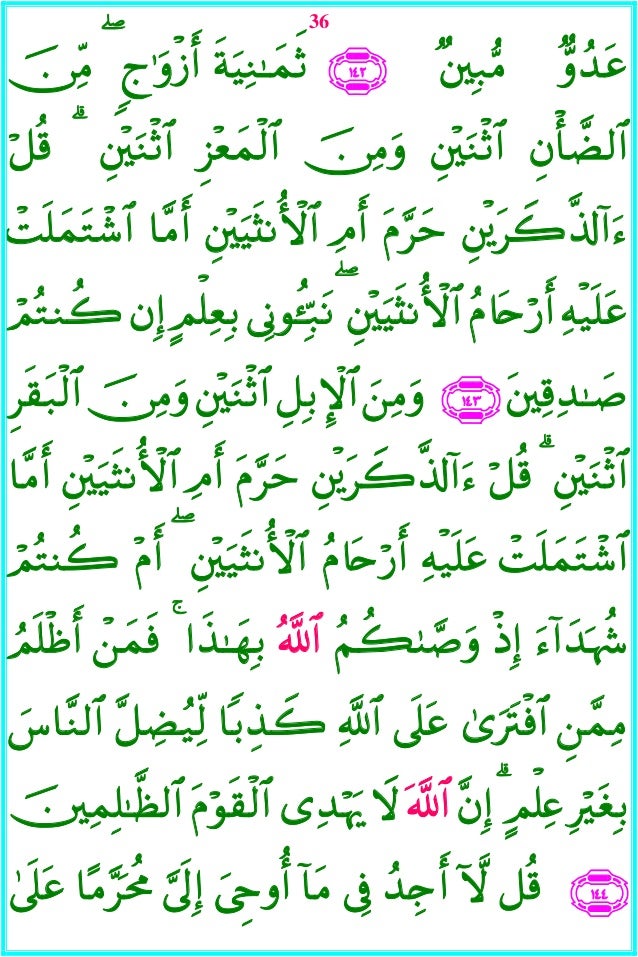 36
عَدُوٌّ مُّبِينٌ ١٤٢ ثَمَـٰنِيَةَ أَزْوَٰجٍ ۖ مِّنَ
ٱلضَّأْنِ ٱثْنَيْنِ وَمِنَ ٱلْمَعْزِ ٱثْنَيْنِ ۗ قُلْ
ءَآلذَّكَرَيْنِ حَرَّمَ أَمِ ٱلْأُنثَيَيْنِ أَمَّا ٱشْتَمَلَتْ
عَلَيْهِ أَرْحَامُ ٱلْأُنثَيَيْنِ ۖ نَبِّـُٔونِى بِعِلْمٍ إِن كُنتُمْ
صَـٰدِقِينَ ١٤٣ وَمِنَ ٱلْإِبِلِ ٱثْنَيْنِ وَمِنَ ٱلْبَقَرِ
ٱثْنَيْنِ ۗ قُلْ ءَآلذَّكَرَيْنِ حَرَّمَ أَمِ ٱلْأُنثَيَيْنِ أَمَّا
ٱشْتَمَلَتْ عَلَيْهِ أَرْحَامُ ٱلْأُنثَيَيْنِ ۖ أَمْ كُنتُمْ
شُهَدَآءَ إِذْ وَصَّىٰكُمُ ٱللَّهُ بِهَـٰذَا ۚ فَمَنْ أَظْلَمُ
مِمَّنِ ٱفْتَرَىٰ عَلَى ٱللَّهِ كَذِبًا لِّيُضِلَّ ٱلنَّاسَ
بِغَيْرِ عِلْمٍ ۗ إِنَّ ٱللَّهَ لَا يَهْدِى ٱلْقَوْمَ ٱلظَّـٰلِمِينَ
١٤٤ قُل لَّآ أَجِدُ فِى مَآ أُوحِىَ إِلَىَّ مُحَرَّمًا عَلَىٰ